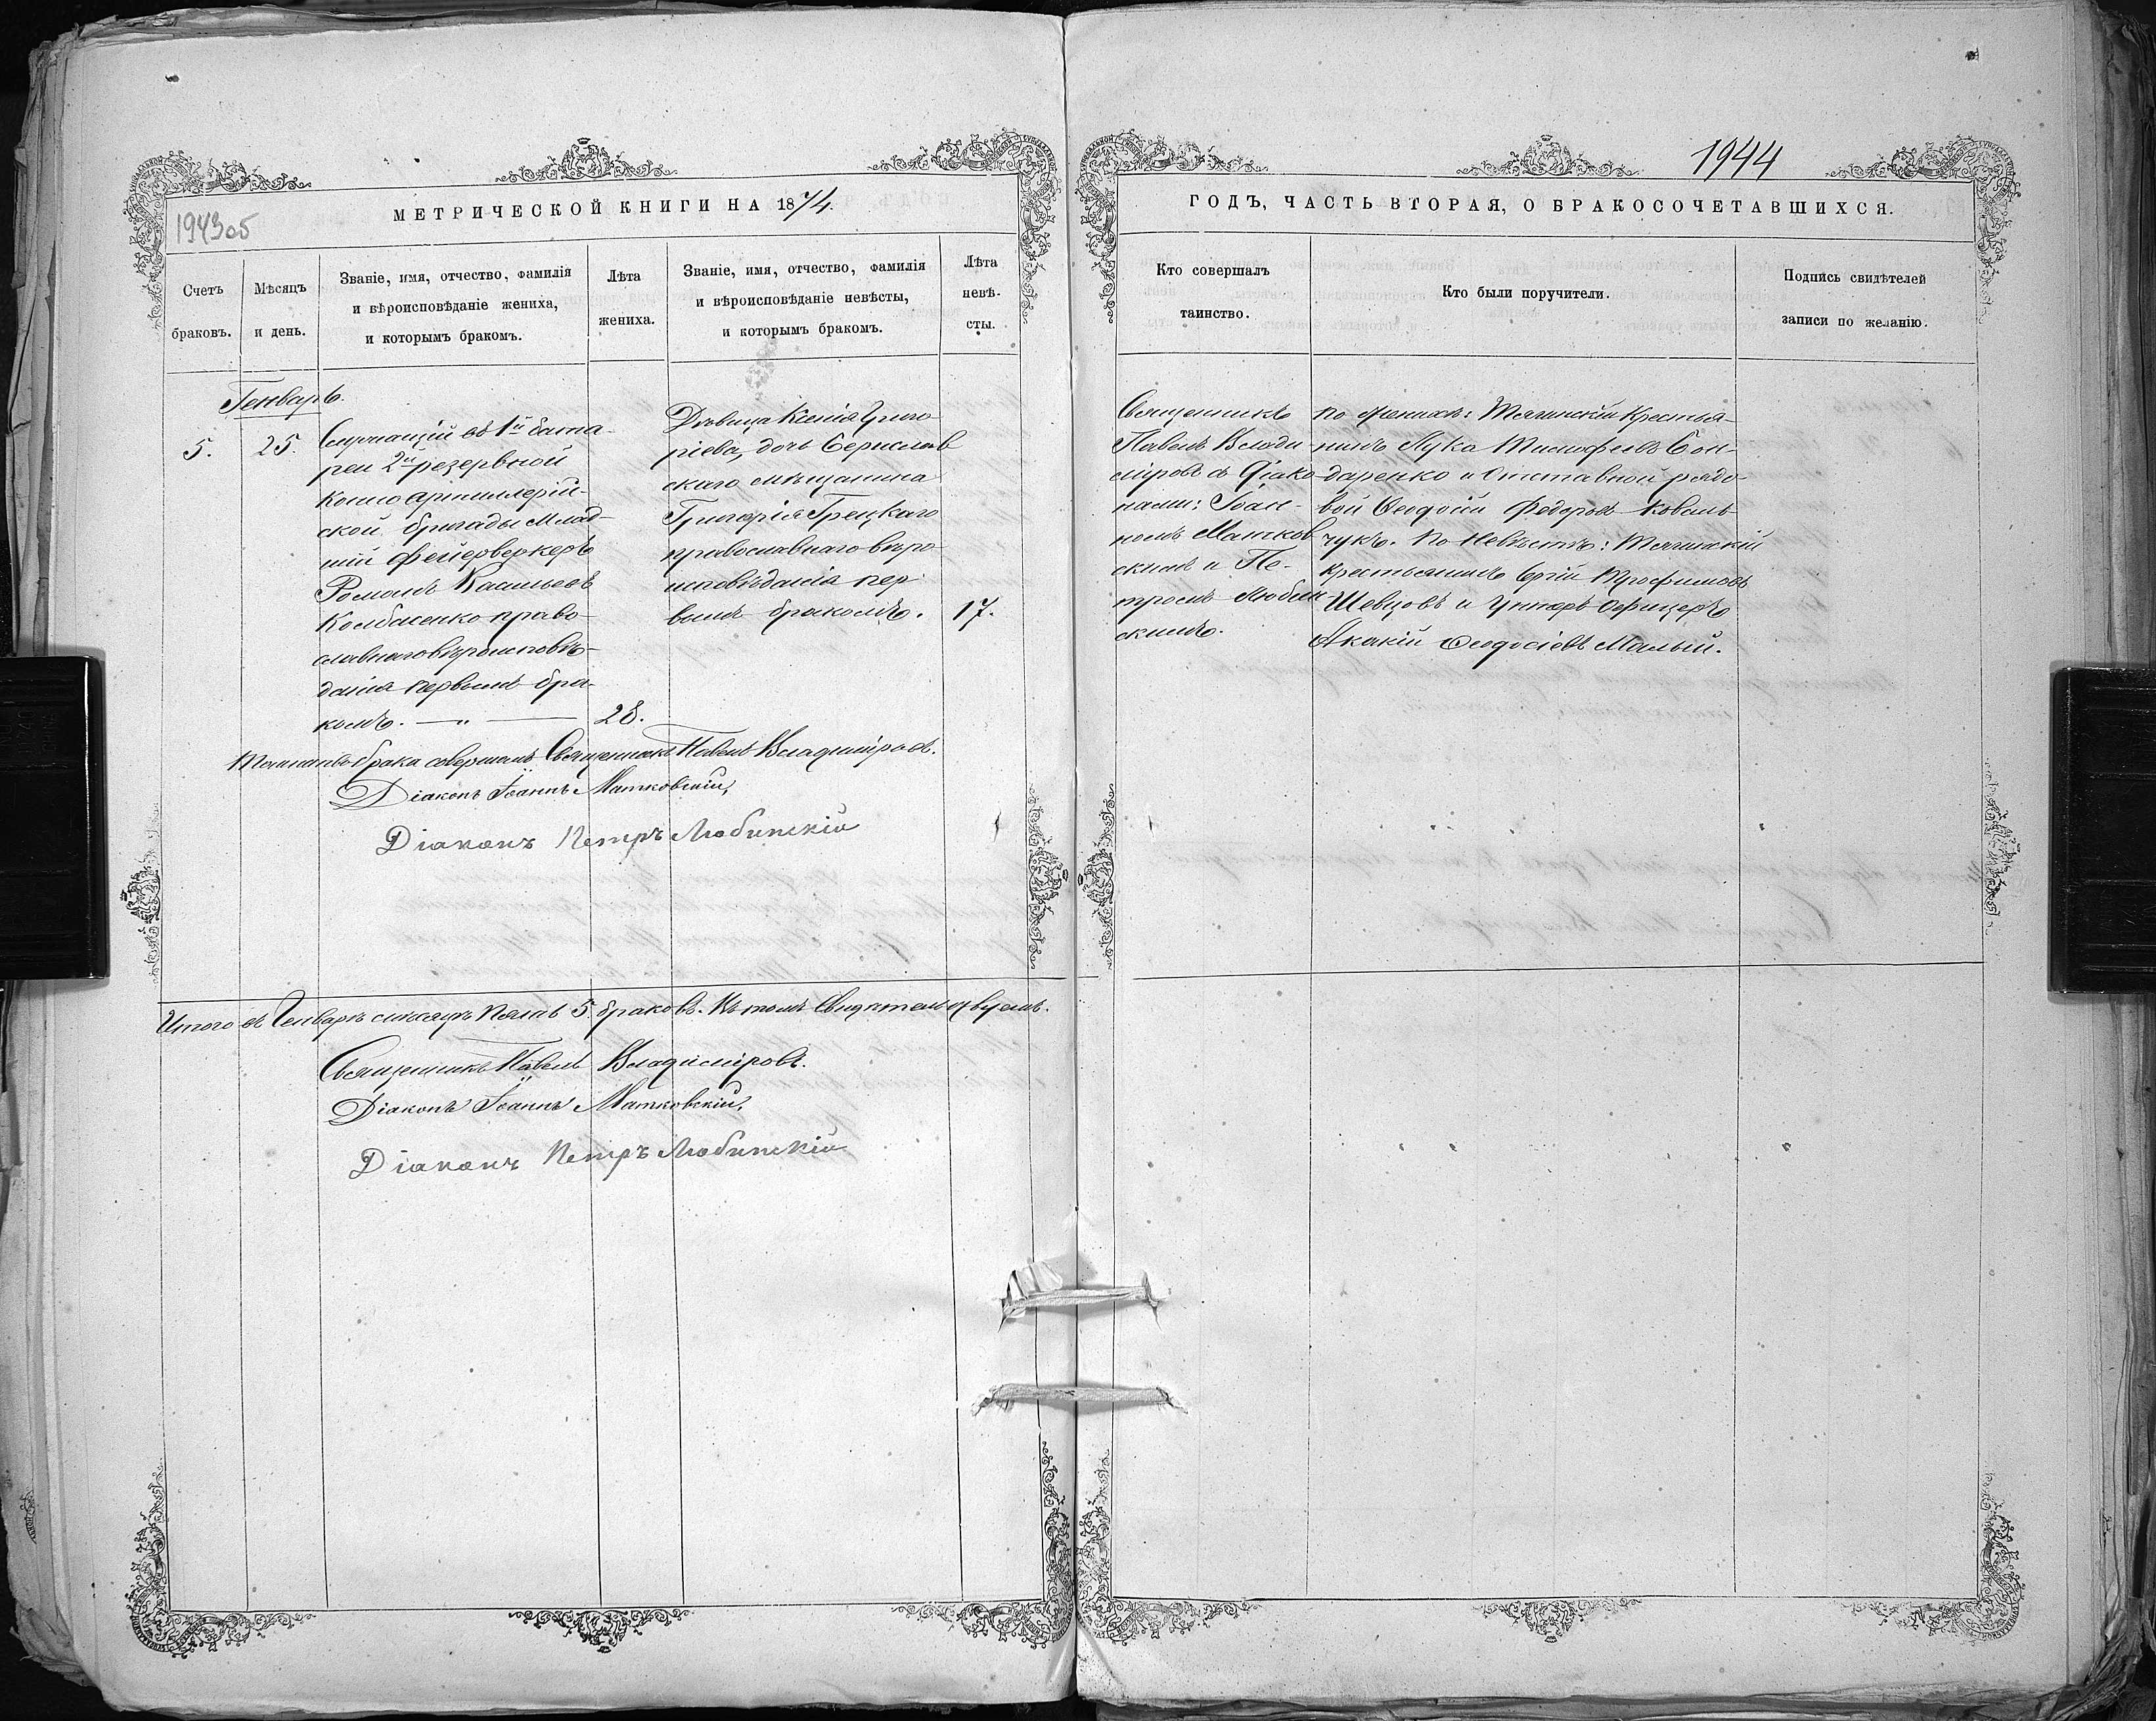 МЕТРИЧЕСКОЙ КНИГИ НА 1874.
1943об
Счетъ браковъ.
Мѣсяцъ и день.
Званіе, имя, отчество, фамилія
и вѣроисповѣданіе жениха,
и которымъ бракомъ.
Лѣта жениха.
Званіе, имя, отчество, фамилія
и вѣроисповѣданіе невѣсты,
и которымъ бракомъ.
Лѣта невѣ-
сты.
Генварь.
5.
25.
Служащій въ 1й бата-
реи 2й резервной
конно артиллерій-
ской бригады Млад-
шій фейерверкеръ
Романъ Васильевъ
Колбасенко право-
славнаго вѣроисповѣ-
данія первымъ бра-
комъ. — „ —
28.
Дѣвица Ксенія Григо-
ріева, дочь Берислав
скаго мѣщанина
Григорія Грецкаго
православнаго вѣро-
исповѣданія пер-
вымъ бракомъ.
17.
Таинство брака совершалъ Священникъ Павелъ Владиміровъ.
Діаконъ Іоаннъ Матковскій,
Діаконъ Петръ Любинскій
Итого въ Генварѣ мѣсяцѣ 5. браковъ. Въ томъ Свидѣтельствуемъ.
Священникъ Павелъ Владиміровъ.
Діаконъ Іоаннъ Матковскій,
Діаконъ Петръ Любинскій
1944
ГОДЪ, ЧАСТЬ ВТОРАЯ, О БРАКОСОЧЕТАВШИХСЯ.
Кто совершалъ
таинство.
Кто были поручители.
Подпись свидѣтелей
записи по желанію.
Священникъ
Павелъ Влади-
міровъ съ Діако-
нами: Іоан-
номъ Матков
скимъ и Пе-
тромъ Любин-
скимъ.
По женихѣ: Тягинскій Крестья-
нинъ Лука Бон-
даренко и Отставной рядо-
вой Ѳеодосій Федоровъ Коваль-
чукъ. По Невѣстѣ: Тягинскій
крестьянинъ Сергій Трофимовъ
Шевцовъ и Унтеръ-Офицеръ
Акакій Ѳеодосіевъ Малый.